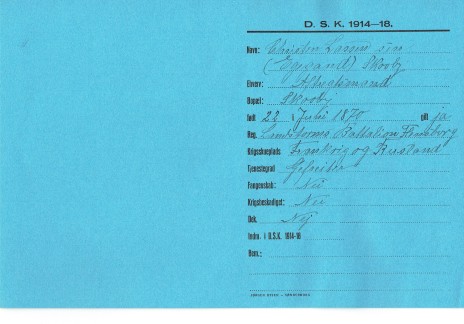 D. S. K. 1914—18.
Navn: Christen Lassen sen
(Egesand) Skovby
Erhverv: Aftægtsmand
Bopæl: Skovby
født 22 i Juli 1870 ja
Reg. Landstorms Battalion Flensborg
Krigsskueplads Frankrig og Rusland
Tjenestegrad Gefreiter
Fangenskab: Nei
Krigsbeskadiget: Nei
Dek. Nej
Indm. i D.S.K. 1914-18
Bem.: